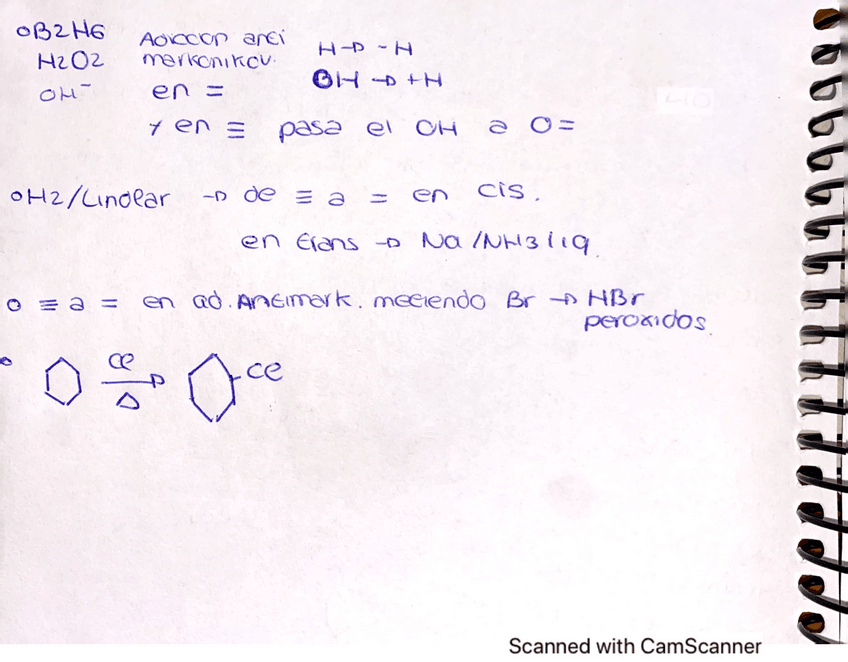 ○B2H6 Adiccion anti H→ -H
H2O2 markonikov. OH → +H
OH⁻ en =
y en ≡ pasa el OH a O=
○H2/Lindlar → de ≡ a = en cis.
en trans → Na/NH3 liq.
○ ≡ a = en ad. Antimark. metiendo Br → HBr
peroxidos.
Cl
Δ
Cl
Scanned with CamScanner